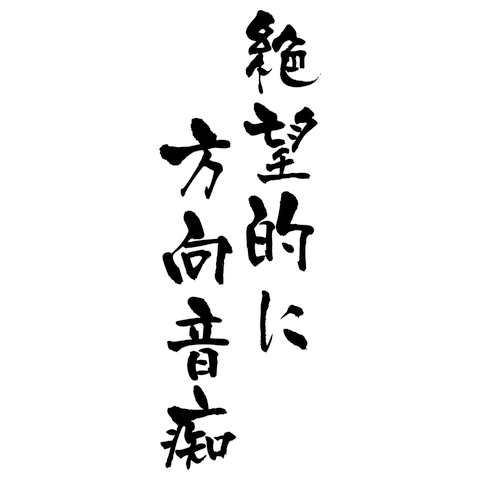 絶望的に
方向音痴